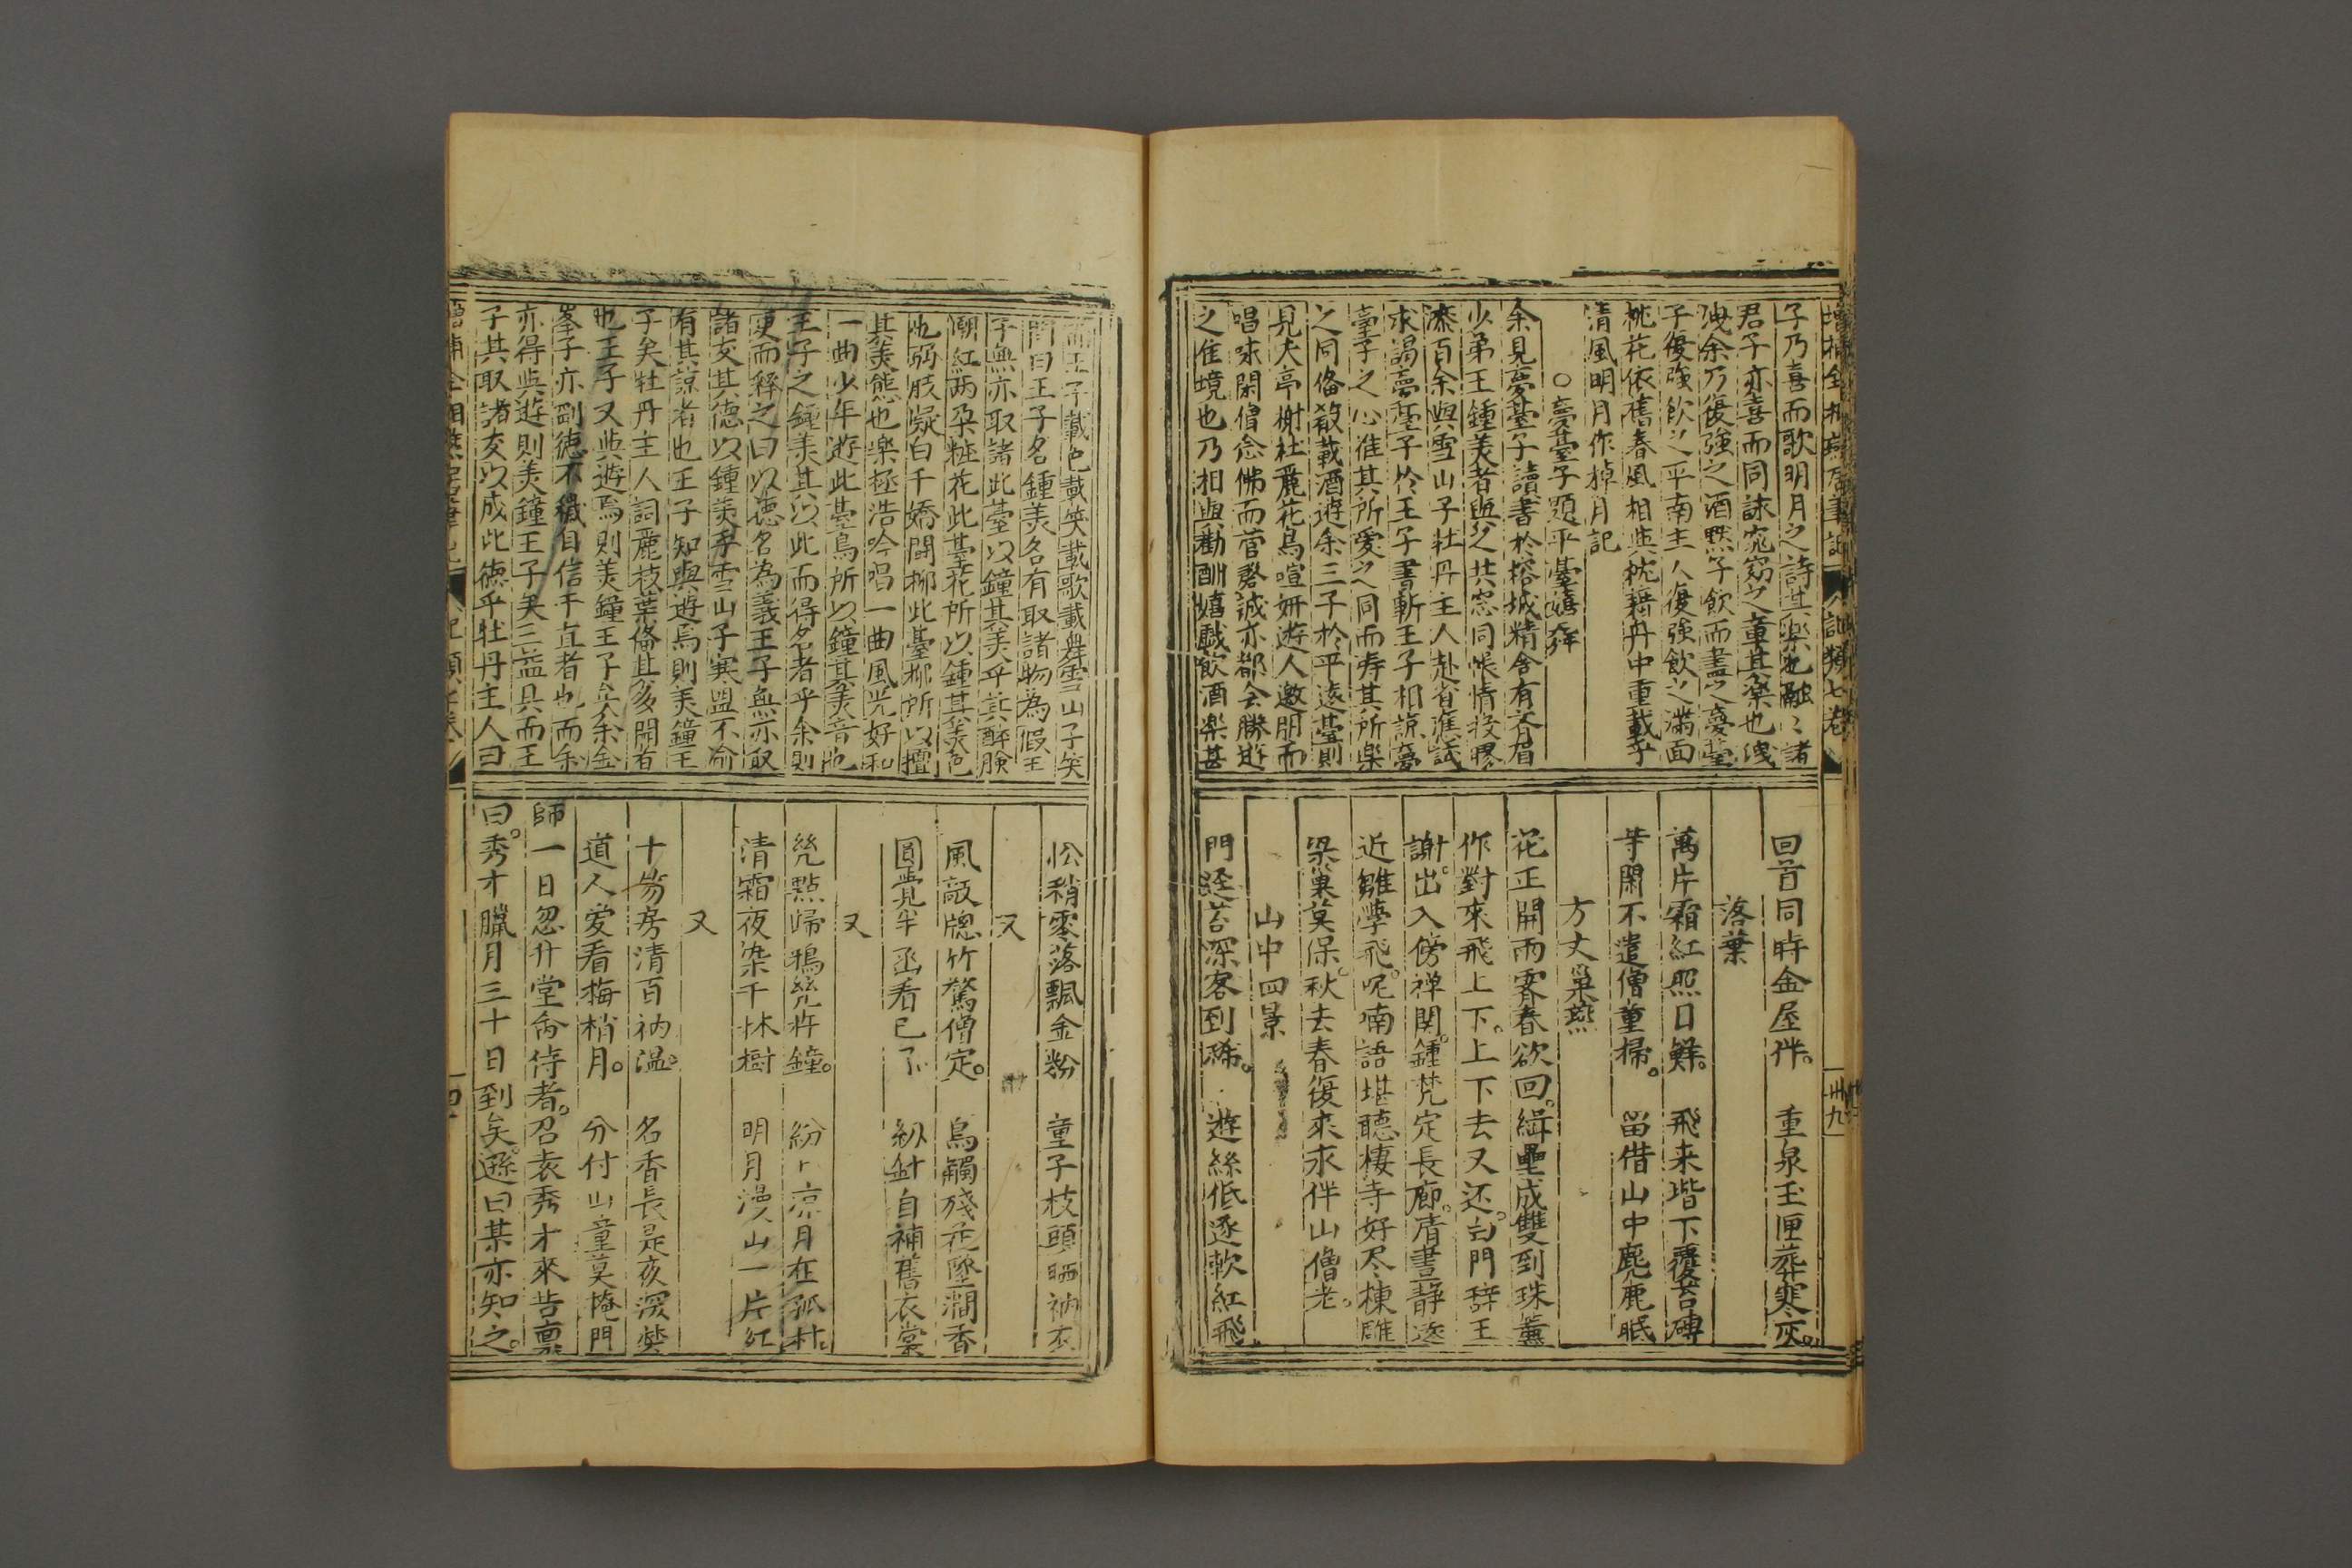 子乃喜而歌明月之詩其樂也融〻諸
君子亦喜而同誄窕窈之章其樂也洩
洩余乃復強之酒黙子飲而盡之臺
子復強飲之平南主人復強飲之滿面
桃花依舊春風相與枕藉丹中重載乎
清風明月作棹月記
○夢臺子題平臺嬉
余見夢臺子讀書於榕城精舍有齊眉
少弟王鍾美者與之共窓同帳情投膠
漆百余與雪山子牡丹主人赴省應試
求謁夢臺子於王子書斬王子相諒夢
臺子之心隹其所愛之同而寿其所楽
之同偹殽載酒遊余三子於平遠臺則
見夫亭榭杜麗花鳥喧妍遊人邀朋而
唱咏閑僧念佛而菅磬誠亦都会勝
之隹境也乃相與勸酬嬉戱飲酒楽甚
回首同時金屋伴。 重泉玉匣葬寒灰。
落葉
萬片霜紅照日鮮。 飛来堦下覆苔磚
等閑不遣僧童掃。 留借山中麂鹿眠
方丈巢燕
花正開雨霽春欲回。緝壘成雙到珠簾
作對來飛上下。上下去又还。白門辞王
謝。出入傍禅関。鍾梵定長廊。清晝静逐
近雛學飛。呢喃語堪聽棲寺好尽棟雕
梁巢莫保。秋去春復來求伴山僧老。
山中四景
門逕苔深客到稀。 遊絲低逐軟紅飛
而王子載色載笑載歌載舞雪山子矣
間曰王子名鍾美名有取諸物為假王
子無亦取諸此臺以鐘其美乎其醉臉
潮紅兩朶粧花此臺花所以鍾其美色
也弱肢凝白千嬌閗柳此臺柳所以擅
其美態也楽極浩吟唱一曲風光好和
一曲少年遊此臺鳥所以鐘其美音也
王子之鍾美其以此而得名者乎余則
更而释之曰以徳名為義王子無亦取
諸友其德以鐘美乎雪山子寒盟不渝
有其諒者也王子知與遊焉則美鐘王
子矣牡丹主人詞麗枝葉偹且多聞者
也王子又與遊焉則美鐘王子矣余金
峯子亦副徳不徴自信平直者也而余
亦得與遊則美鐘王子矣三益具而王
子其取諸友以成此徳乎牡丹主人曰
松稍零落飄金粉 童子枝頭晒衲衣
又
風敲牕竹驚僧定。 鳥觸殘花墜澗香
圓覺半函看已了 紉針自補舊衣裳
又
㡬點帰鴉㡬杵鐘。 紛〻凉月在孤村。
清霜夜染千林樹 明月漫山一片紅
又
十笏房清百衲温。 名香長是夜深焚
道人爱看梅梢月。 分付山童莫掩門
師一日忽升堂命侍者。召袁秀才來告禀
曰。秀才臘月三十日到矣。遜曰某亦知之。
卅九